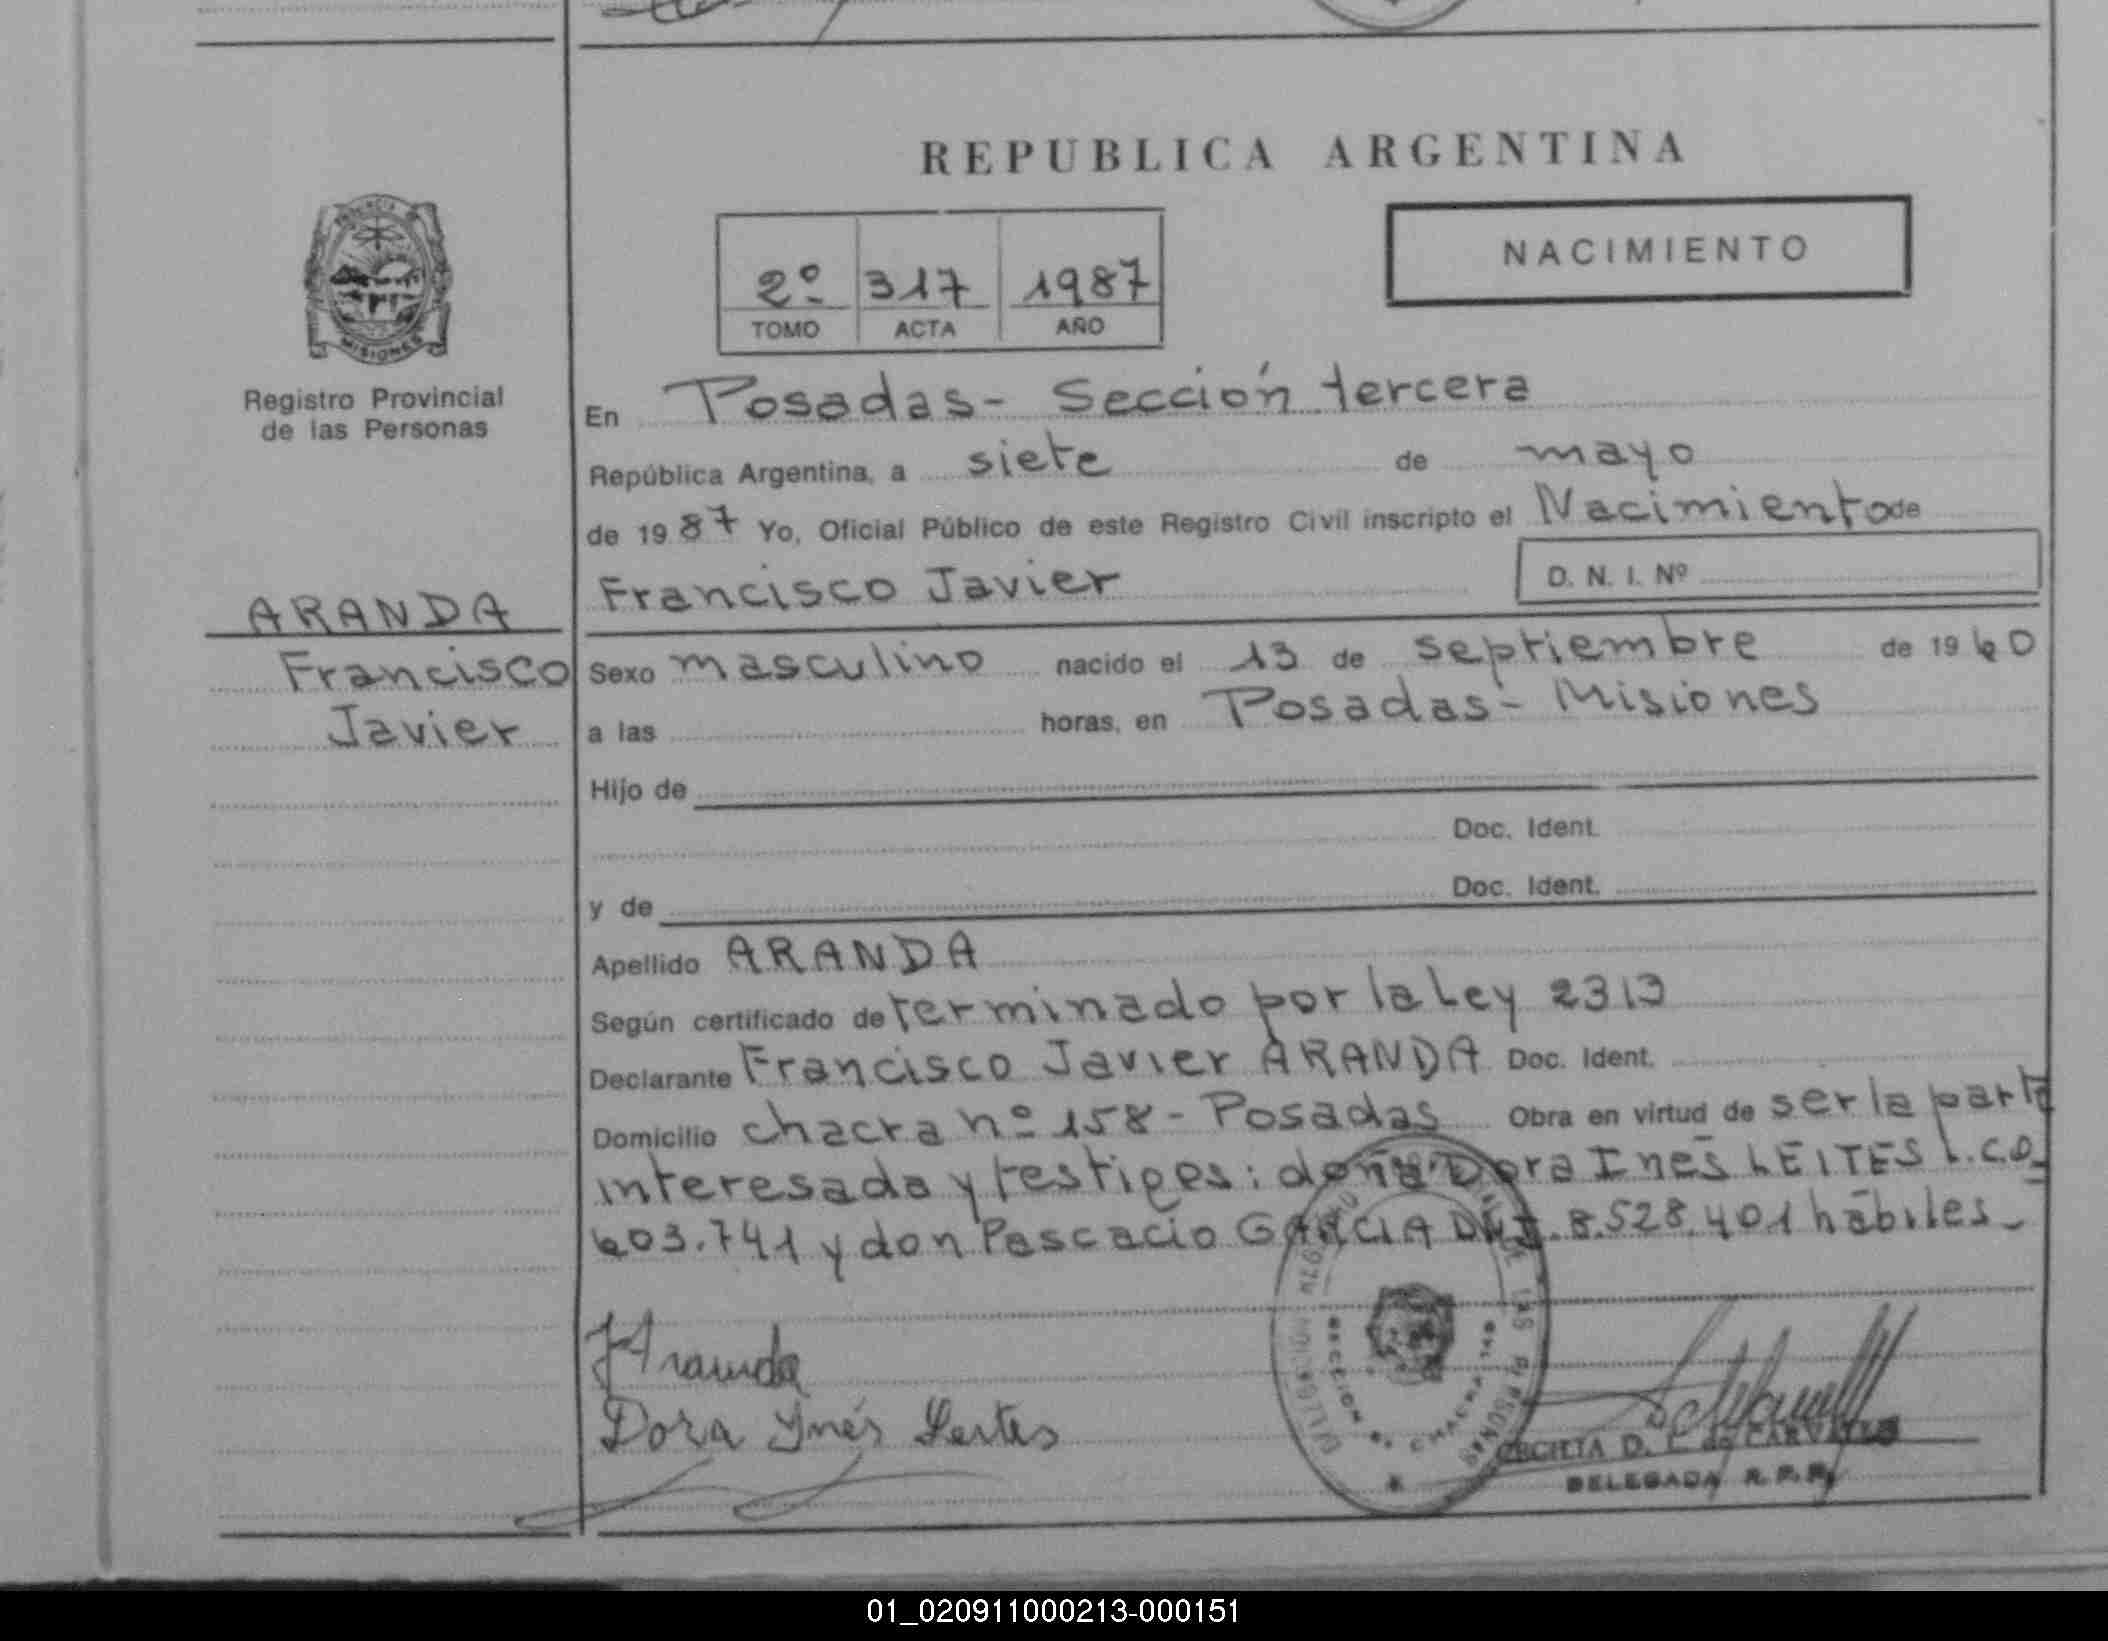 REPUBLICA ARGENTINA
NACIMIENTO
2º 317 1987
TOMO ACTA AÑO
PROVINCIA DE
MISIONES
Registro Provincial
de las Personas
ARANDA
Francisco
Javier
En Posadas - Sección tercera
República Argentina, a siete de mayo
de 1987 Yo, Oficial Público de este Registro Civil inscripto el Nacimiento de
Francisco Javier D. N. I. Nº
Sexo masculino nacido el 13 de septiembre de 1960
a las horas, en Posadas - Misiones
Hijo de
Doc. Ident.
y de Doc. Ident.
Apellido ARANDA
Según certificado determinado por la Ley 2313
Declarante Francisco Javier ARANDA Doc. Ident.
Domicilio chacra nº 158 - Posadas Obra en virtud de ser la parte
interesada y testigos: doña Dora Inés LEITES L.C.0.
603.741 y don Pascacio GARCIA DNI. 8.528.401 hábiles -
Aranda
Dora Ynés Leites
DELEGADA R. P. P.
01_020911000213-000151